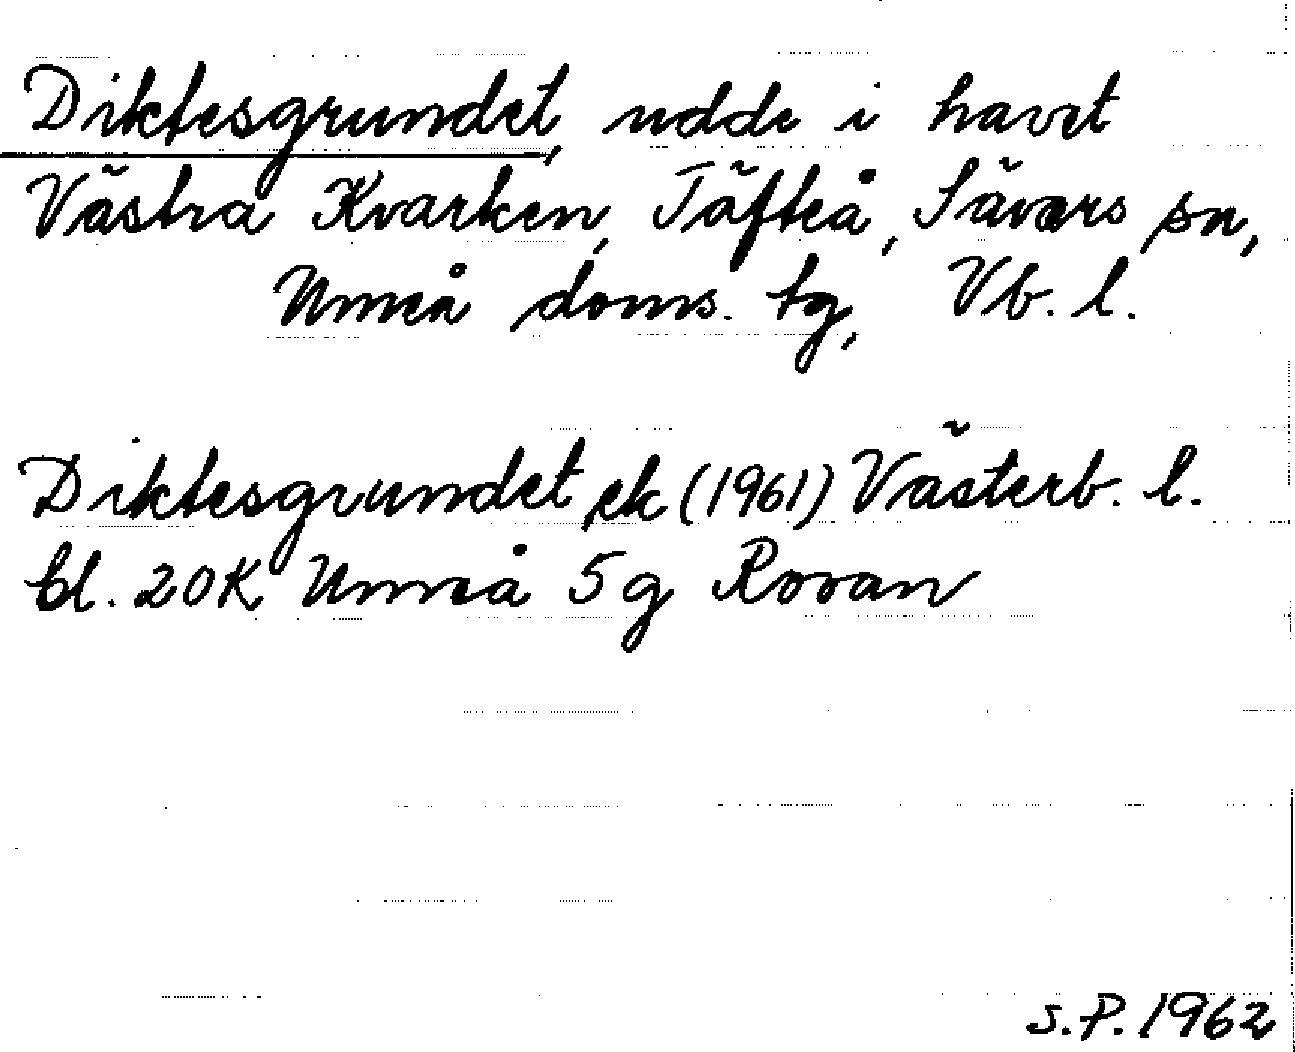 Diktesgrundet, udde i havet
Västra Kvarken, Täfteå, Sävars sn,
Umeå doms. tg, Vb. l.
Diktesgrundet, ek (1961) Västerb. l.
bl. 20K Umeå 5g Rovan
S.P. 1962